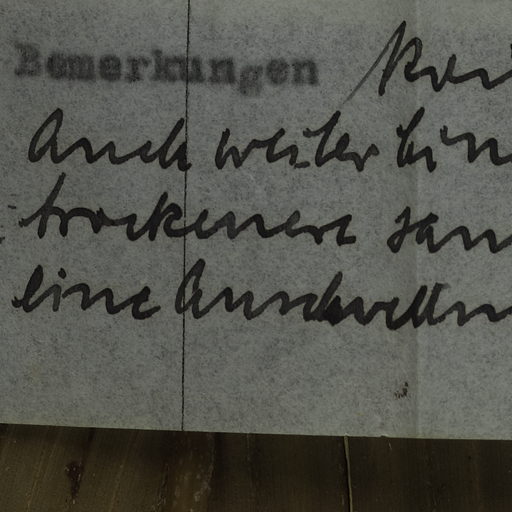 Bemerkungen
Auch weiter hin
trockenere san
eine Anschwellun